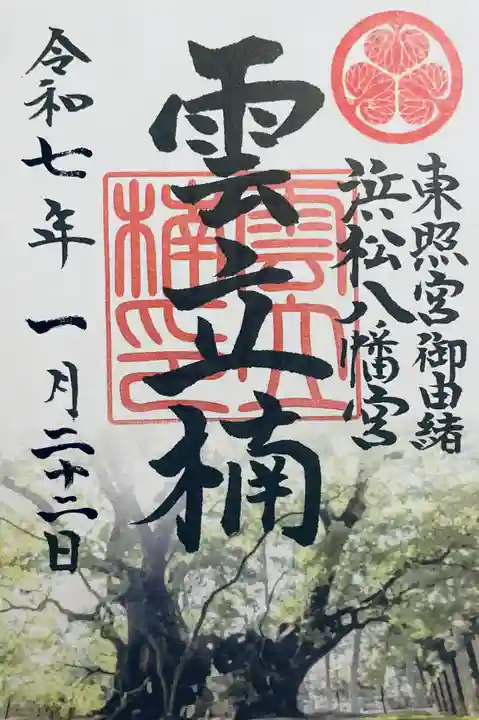 東照宮御由緒
浜松八幡宮
雲立楠
雲立
楠印
令和七年 一月二十二日